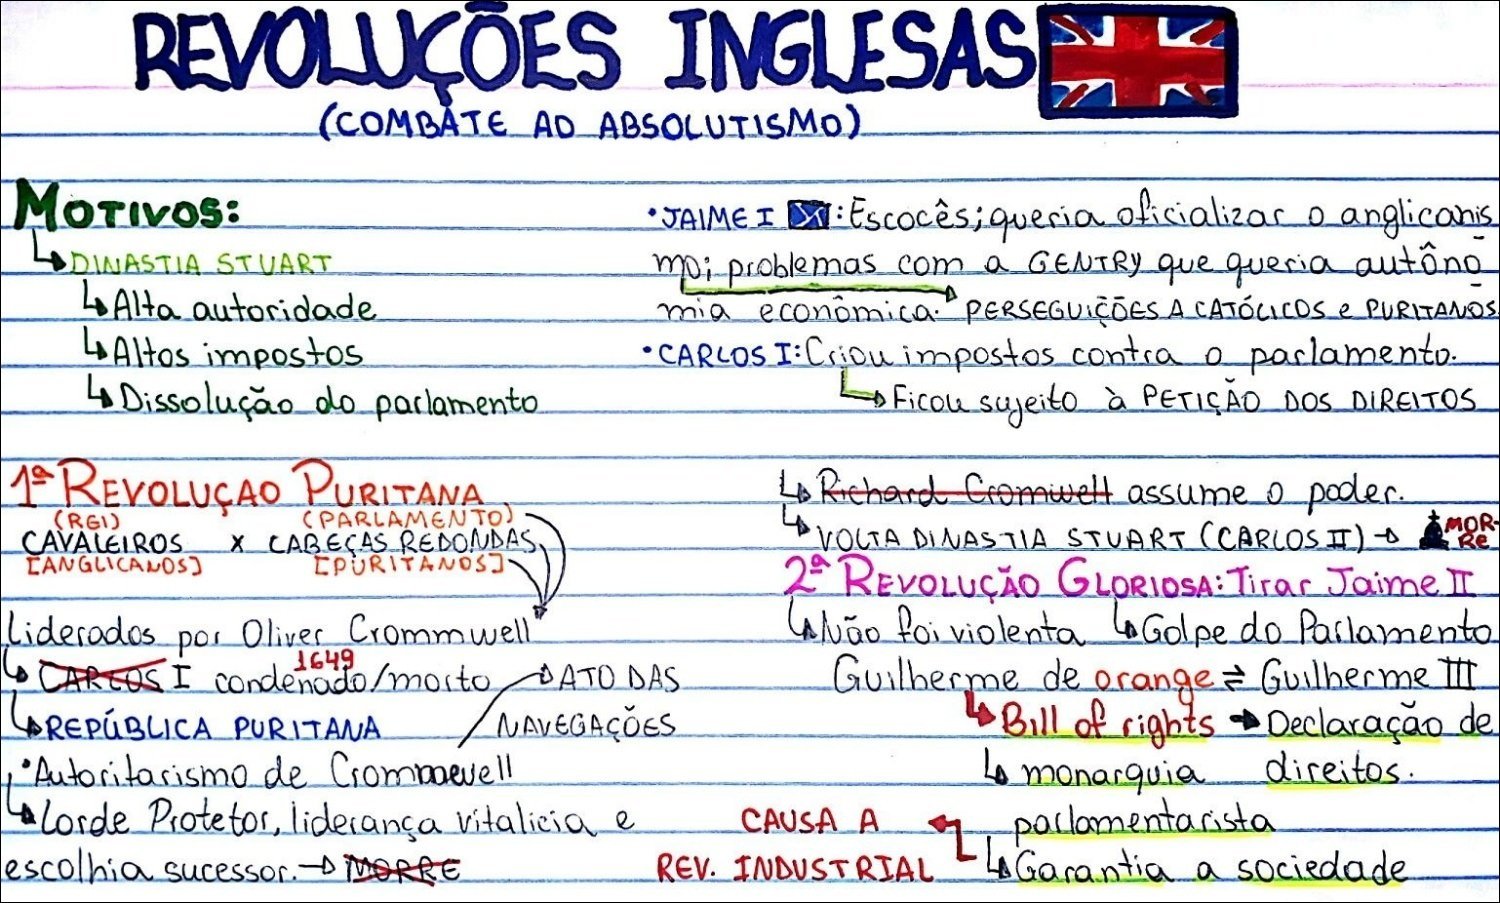 REVOLUÇÕES INGLESAS
(COMBATE AO ABSOLUTISMO)
MOTIVOS:
DINASTIA STUART
Alta autoridade
Altos impostos
Dissolução do parlamento
•JAIME I : Escocês; queria oficializar o anglicanis
mo; problemas com a GENTRY que queria autôno
mia econômica. PERSEGUIÇÕES A CATÓLICOS e PURITANOS
•CARLOS I: Criou impostos contra o parlamento.
Ficou sujeito à PETIÇÃO DOS DIREITOS
1ª REVOLUÇAO PURITANA
(REI) (PARLAMENTO)
CAVALEIROS x CABEÇAS REDONDAS
[ANGLICANOS] [PURITANOS]
Liderados por Oliver Crommwell
1649
CARLOS I condenado/morto
REPÚBLICA PURITANA
ATO DAS
NAVEGAÇÕES
•Autoritarismo de Crommewell
Lorde Protetor, liderança vitalicia e
escolhia sucessor. MORRE
Richard Cromwell assume o poder.
VOLTA DINASTIA STUART (CARLOS II) MOR-
RE
2ª REVOLUÇÃO GLORIOSA: Tirar Jaime II
Não foi violenta Golpe do Parlamento
Guilherme de orange ⇌ Guilherme III
Bill of rights Declaração de
direitos.
monarquia
parlamentarista
Garantia a sociedade
CAUSA A
REV. INDUSTRIAL